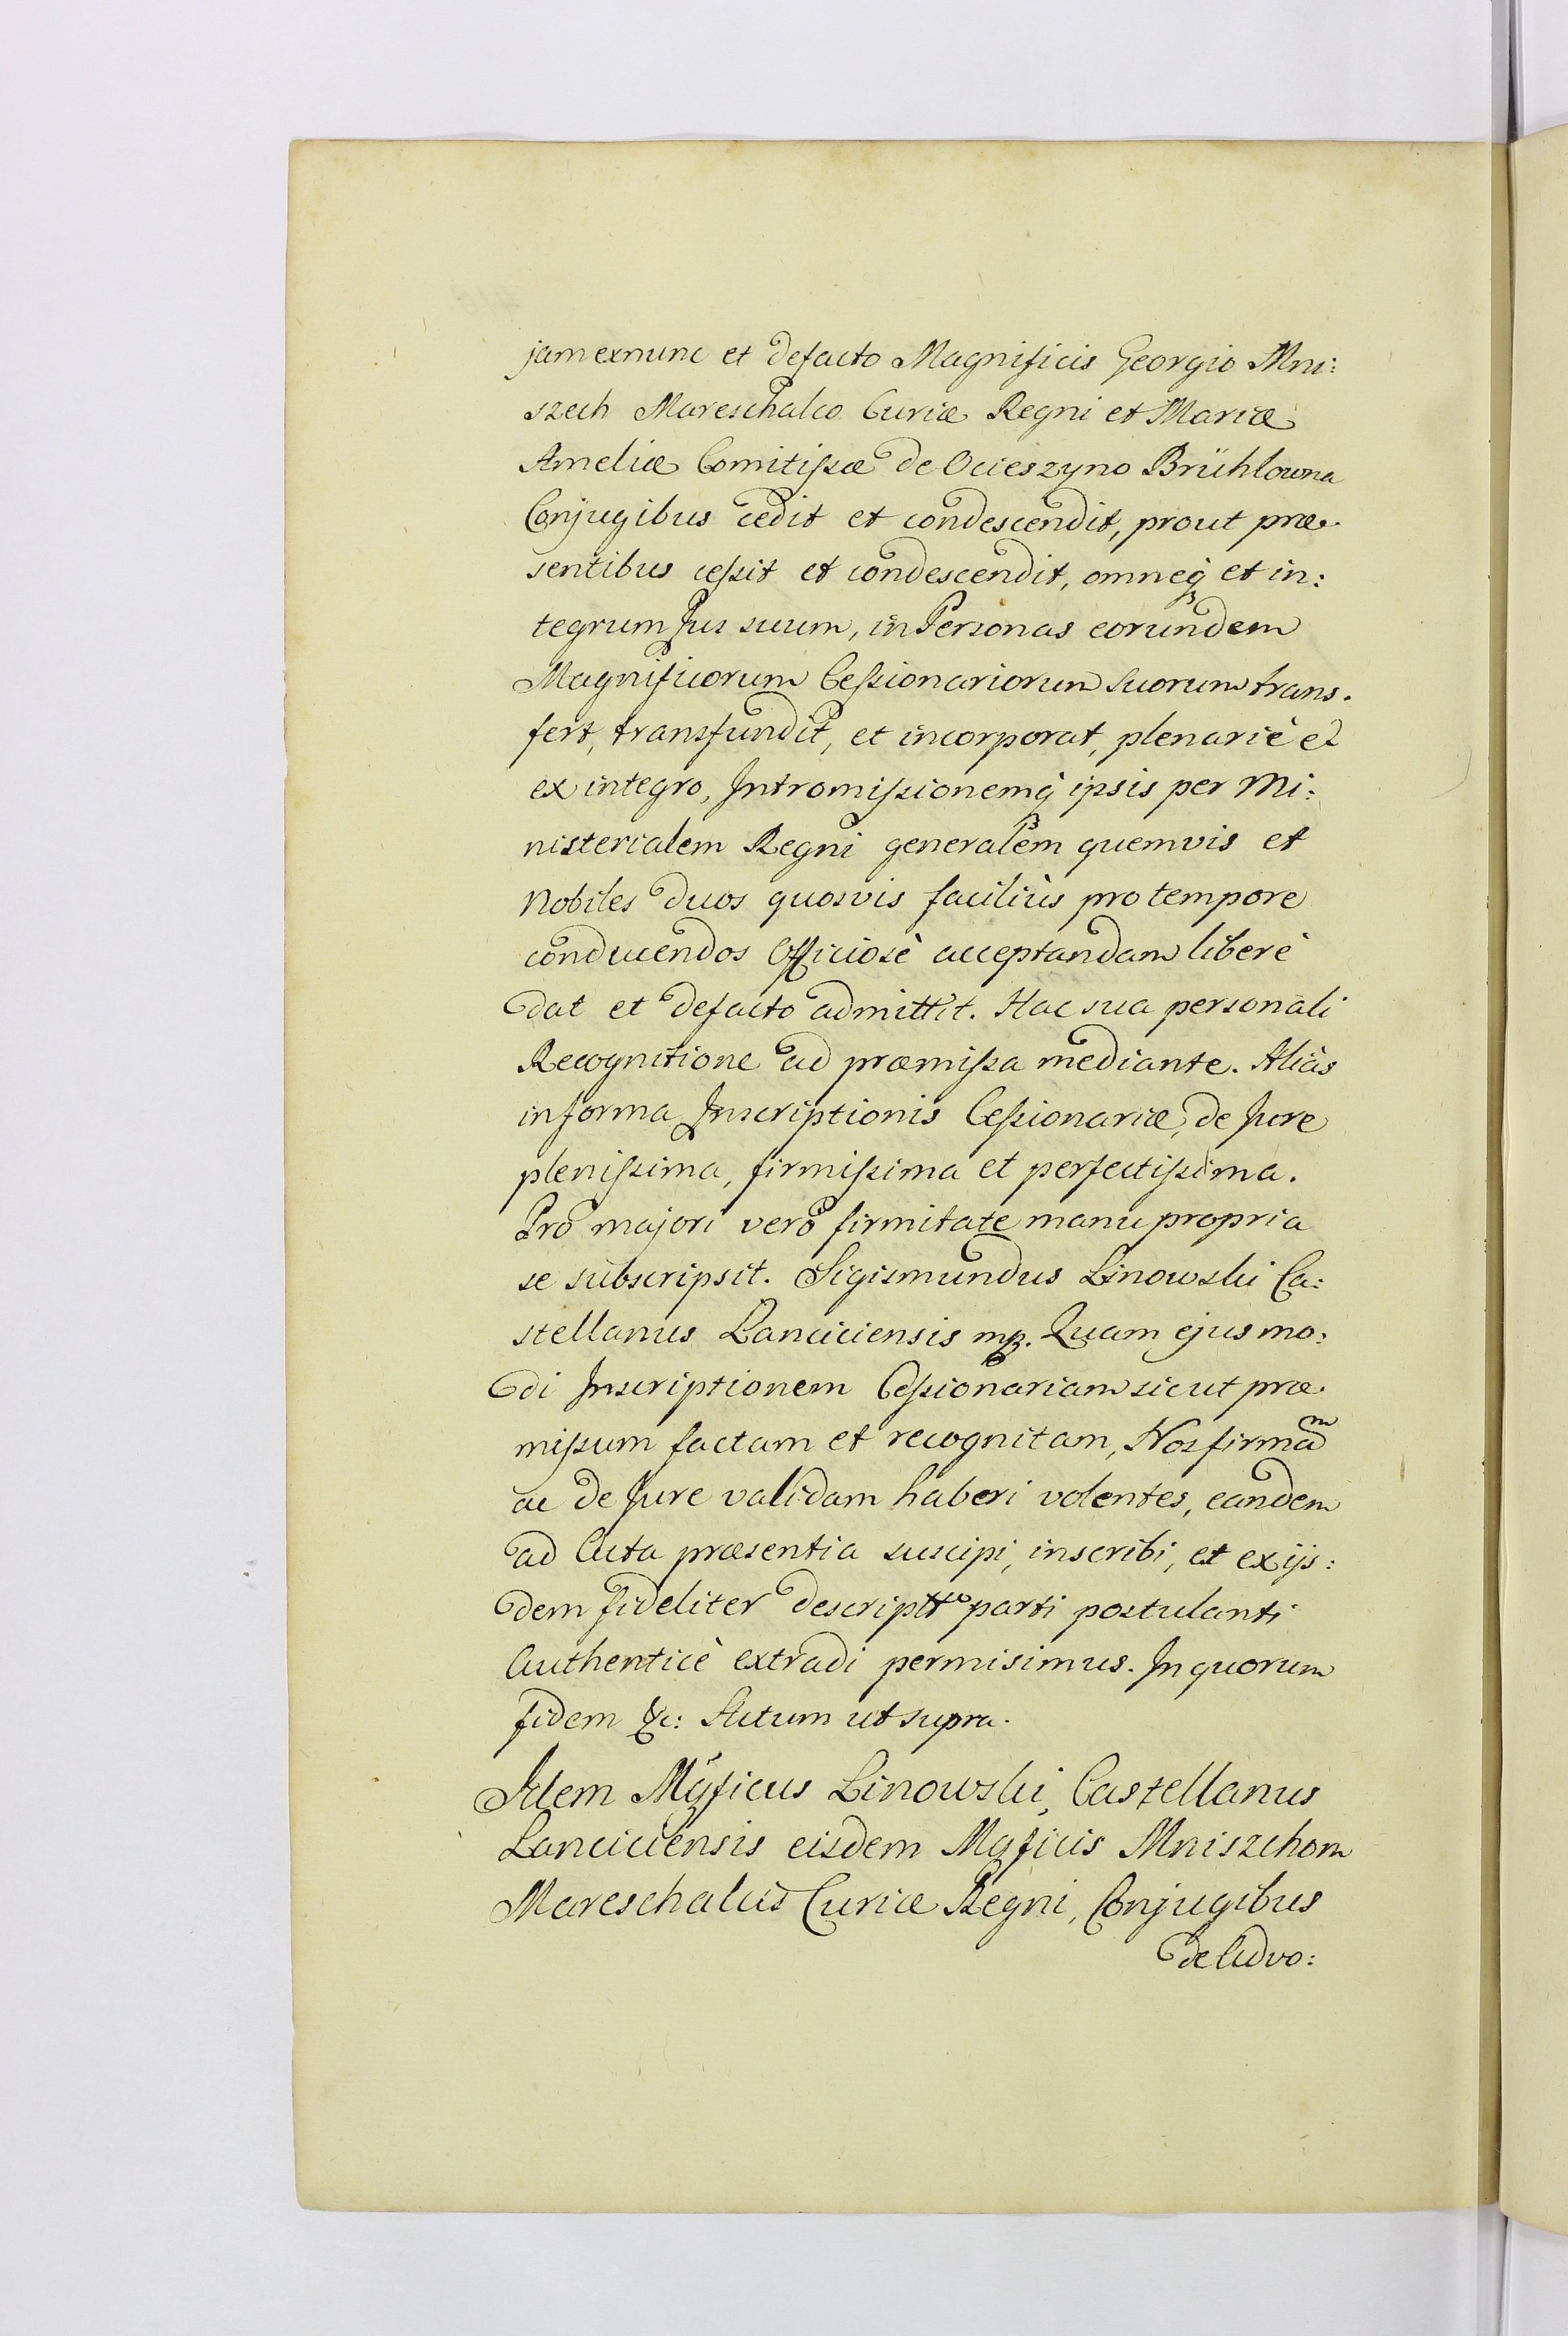 jam exnunc et defacto Magnificis Georgio Mni:
szech Mareschalco Curiæ Regni et Mariæ
Ameliæ Comitissæ de Ocieszyno Brühlowna
Conjugibus cedit et condescendit, prout præ-
sentibus cessit et condescendit, omneq́ et in:
tegrum Jus suum, in Personas eorundem
Magnificorum Cessionariorum suorum trans-
fert, transfundit, et incorporat, plenariè et
ex integro, Intromissionemq́ ipsis per Mi:
nisterialem Regni generalem quemvis et
Nobiles duos quosvis faciliùs pro tempore
conducendos Officiosè acceptandam liberè
dat et defacto admittit. Hac sua personali
Recognitione ad præmissa mediante. Aliàs
in forma Inscriptionis Cessionariæ, de Jure
plenissima, firmissima et perfectissima.
Pro majori verò firmitate manu propria
se subscripsit. Sigismundus Linowski Ca:
stellanus Lanciciensis mp. Quam ejusmo:
di Inscriptionem Cessionariam sicut præ-
missum factam et recognitam, Nos firmam
ac de Jure validam haberi volentes, eandem
ad Acta præsentia suscipi, inscribi, et ex ijs:
dem fideliter descriptto parti postulanti
Authenticè extradi permisimus. In quorum
fidem &c: Actum ut supra.
Idem Mgficus Linowski, Castellanus
Lanciciensis eisdem Mgficis Mniszchom
Mareschalcis Curiæ Regni, Conjugibus
de Advo: